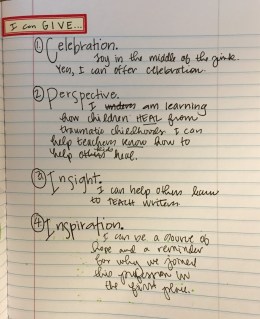 I can GIVE...
① Celebration.
Joy in the middle of the
Yes, I can offer celebration.
② Perspective.
I am learning
how children HEAL from
traumatic childhoods. I can
help teachers know how to
help others heal.
③ Insight.
I can help others learn
to TEACH writers
④ Inspiration.
I can be a source of
hope and a reminder
for why we joined
this profession in
the first place.